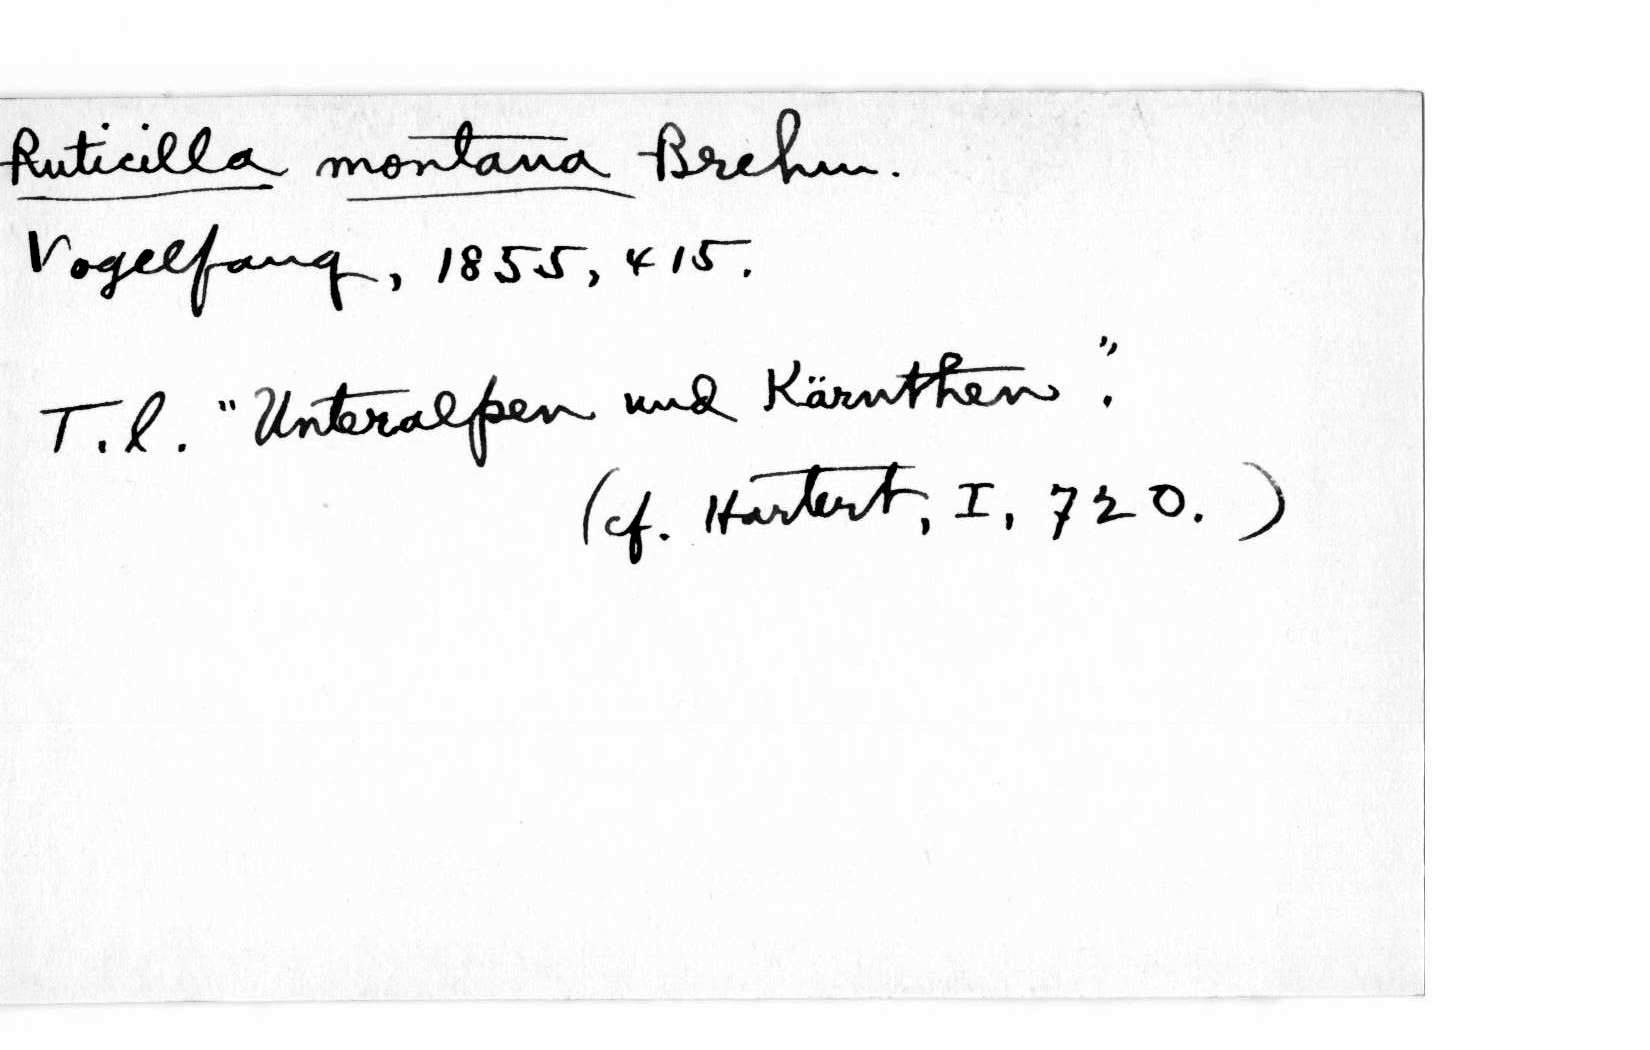 Ruticilla montana Brehm.
Vogelfang, 1855, 415.
T.l. "Unteralpen und Kärnthen".
(cf. Hartert, I, 720.)